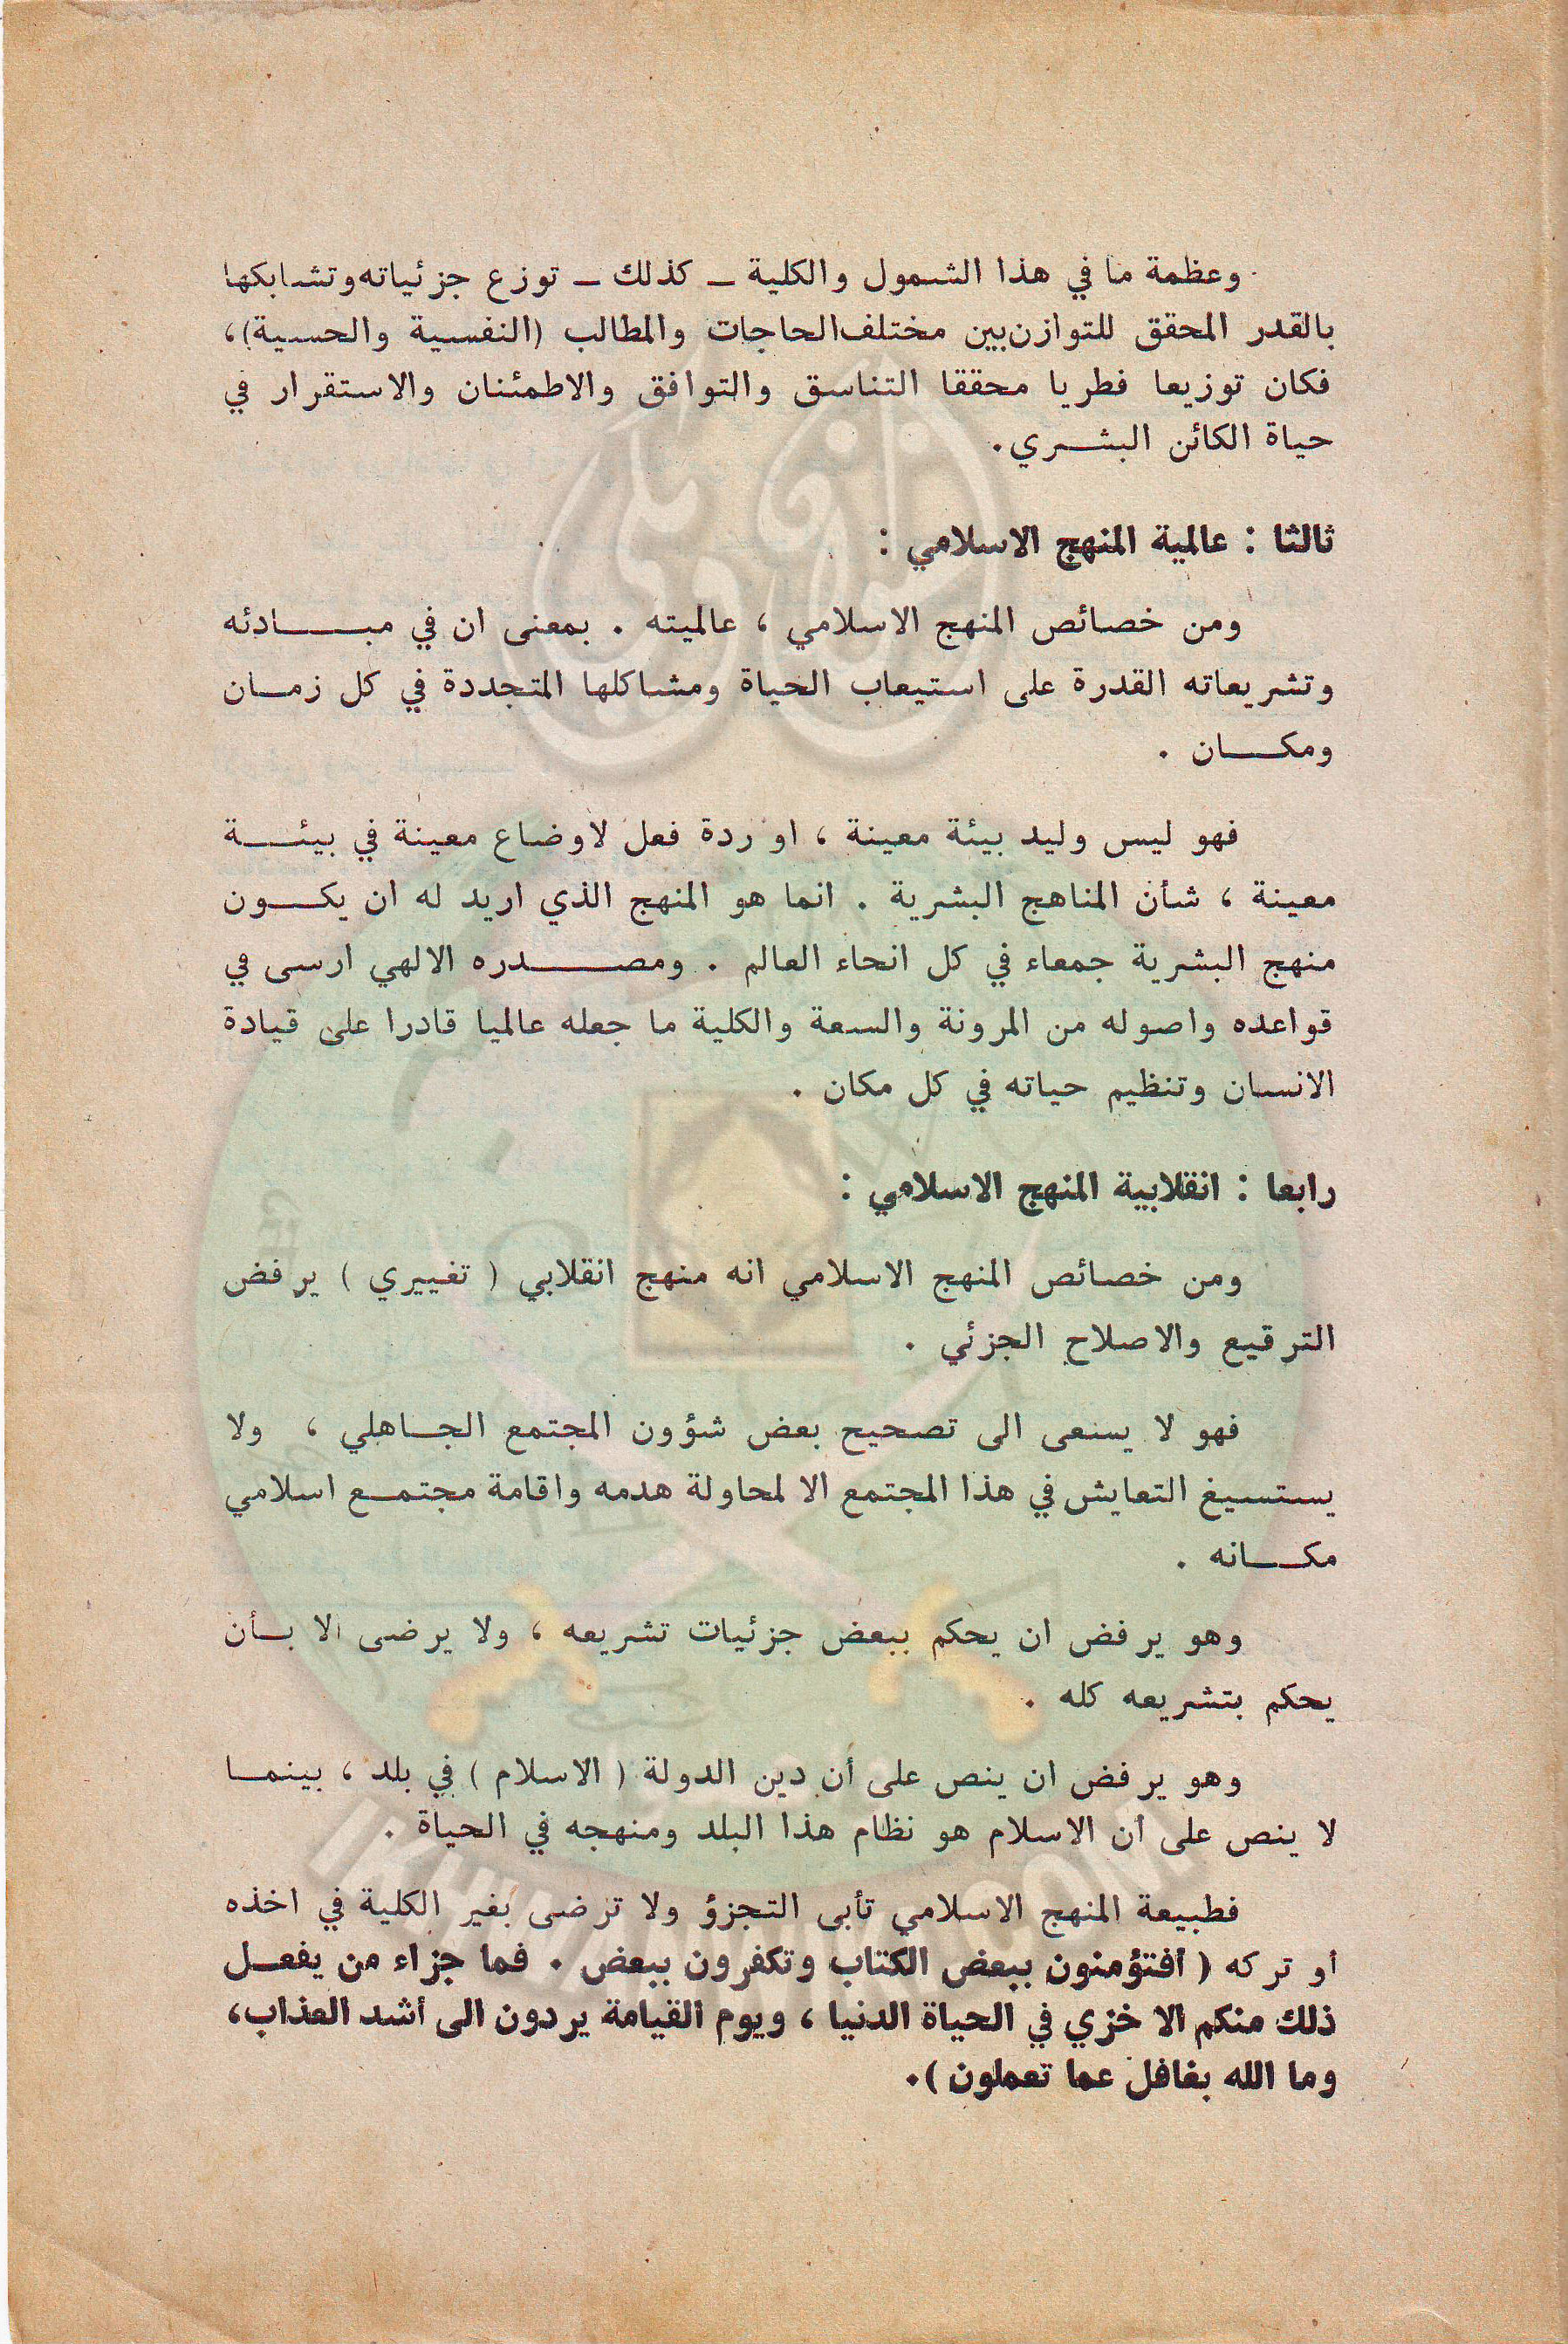 وعظمة ما في هذا الشمول والكلية ــ كذلك ــ توزع جزئياته وتشابكها
بالقدر المحقق للتوازن بين مختلف الحاجات والمطالب (النفسية والحسية)،
فكان توزيعا فطريا محققا التناسق والتوافق والاطمئنان والاستقرار في
حياة الكائن البشري.
ثالثا : عالمية المنهج الاسلامي :
ومن خصائص المنهج الاسلامي ، عالميته . بمعنى ان في مبادئه
وتشريعاته القدرة على استيعاب الحياة ومشاكلها المتجددة في كل زمان
ومكان .
فهو ليس وليد بيئة معينة ، او ردة فعل لاوضاع معينة في بيئة
معينة ، شأن المناهج البشرية . انما هو المنهج الذي اريد له ان يكون
منهج البشرية جمعاء في كل انحاء العالم . ومصدره الالهي ارسى في
قواعده واصوله من المرونة والسعة والكلية ما جعله عالميا قادرا على قيادة
الانسان وتنظيم حياته في كل مكان .
رابعا : انقلابية المنهج الاسلامي :
ومن خصائص المنهج الاسلامي انه منهج انقلابي ( تغييري ) يرفض
الترقيع والاصلاح الجزئي .
فهو لا يسعى الى تصحيح بعض شؤون المجتمع الجاهلي ، ولا
يستسيغ التعايش في هذا المجتمع الا لمحاولة هدمه واقامة مجتمع اسلامي
مكانه .
وهو يرفض ان يحكم ببعض جزئيات تشريعه ، ولا يرضى الا بأن
يحكم بتشريعه كله .
وهو يرفض ان ينص على أن دين الدولة ( الاسلام ) في بلد ، بينما
لا ينص على أن الاسلام هو نظام هذا البلد ومنهجه في الحياة .
فطبيعة المنهج الاسلامي تأبى التجزؤ ولا ترضى بغير الكلية في اخذه
أو تركه ( أفتؤمنون ببعض الكتاب وتكفرون ببعض . فما جزاء من يفعل
ذلك منكم الا خزي في الحياة الدنيا ، ويوم القيامة يردون الى أشد العذاب،
وما الله بغافل عما تعملون ).